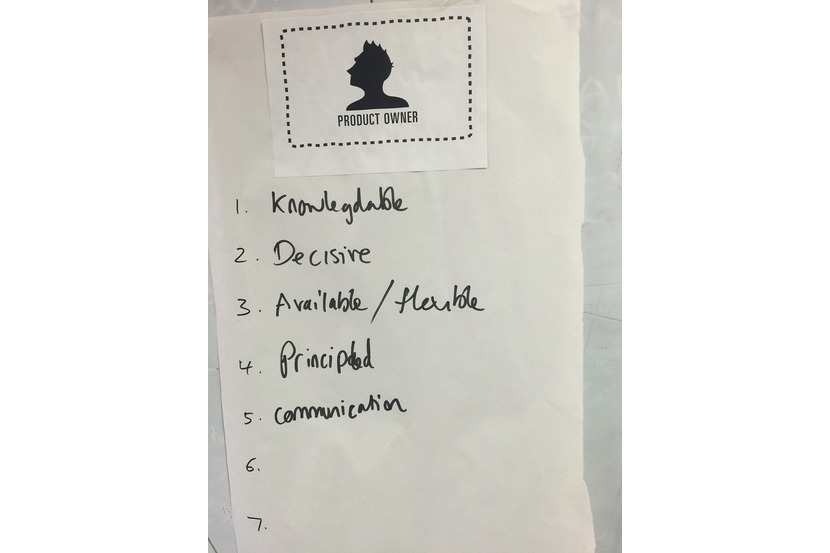 PRODUCT OWNER
1. Knowlegdable
2. Decisive
3. Available / flexible
4. Principled
5. communication
6.
7.